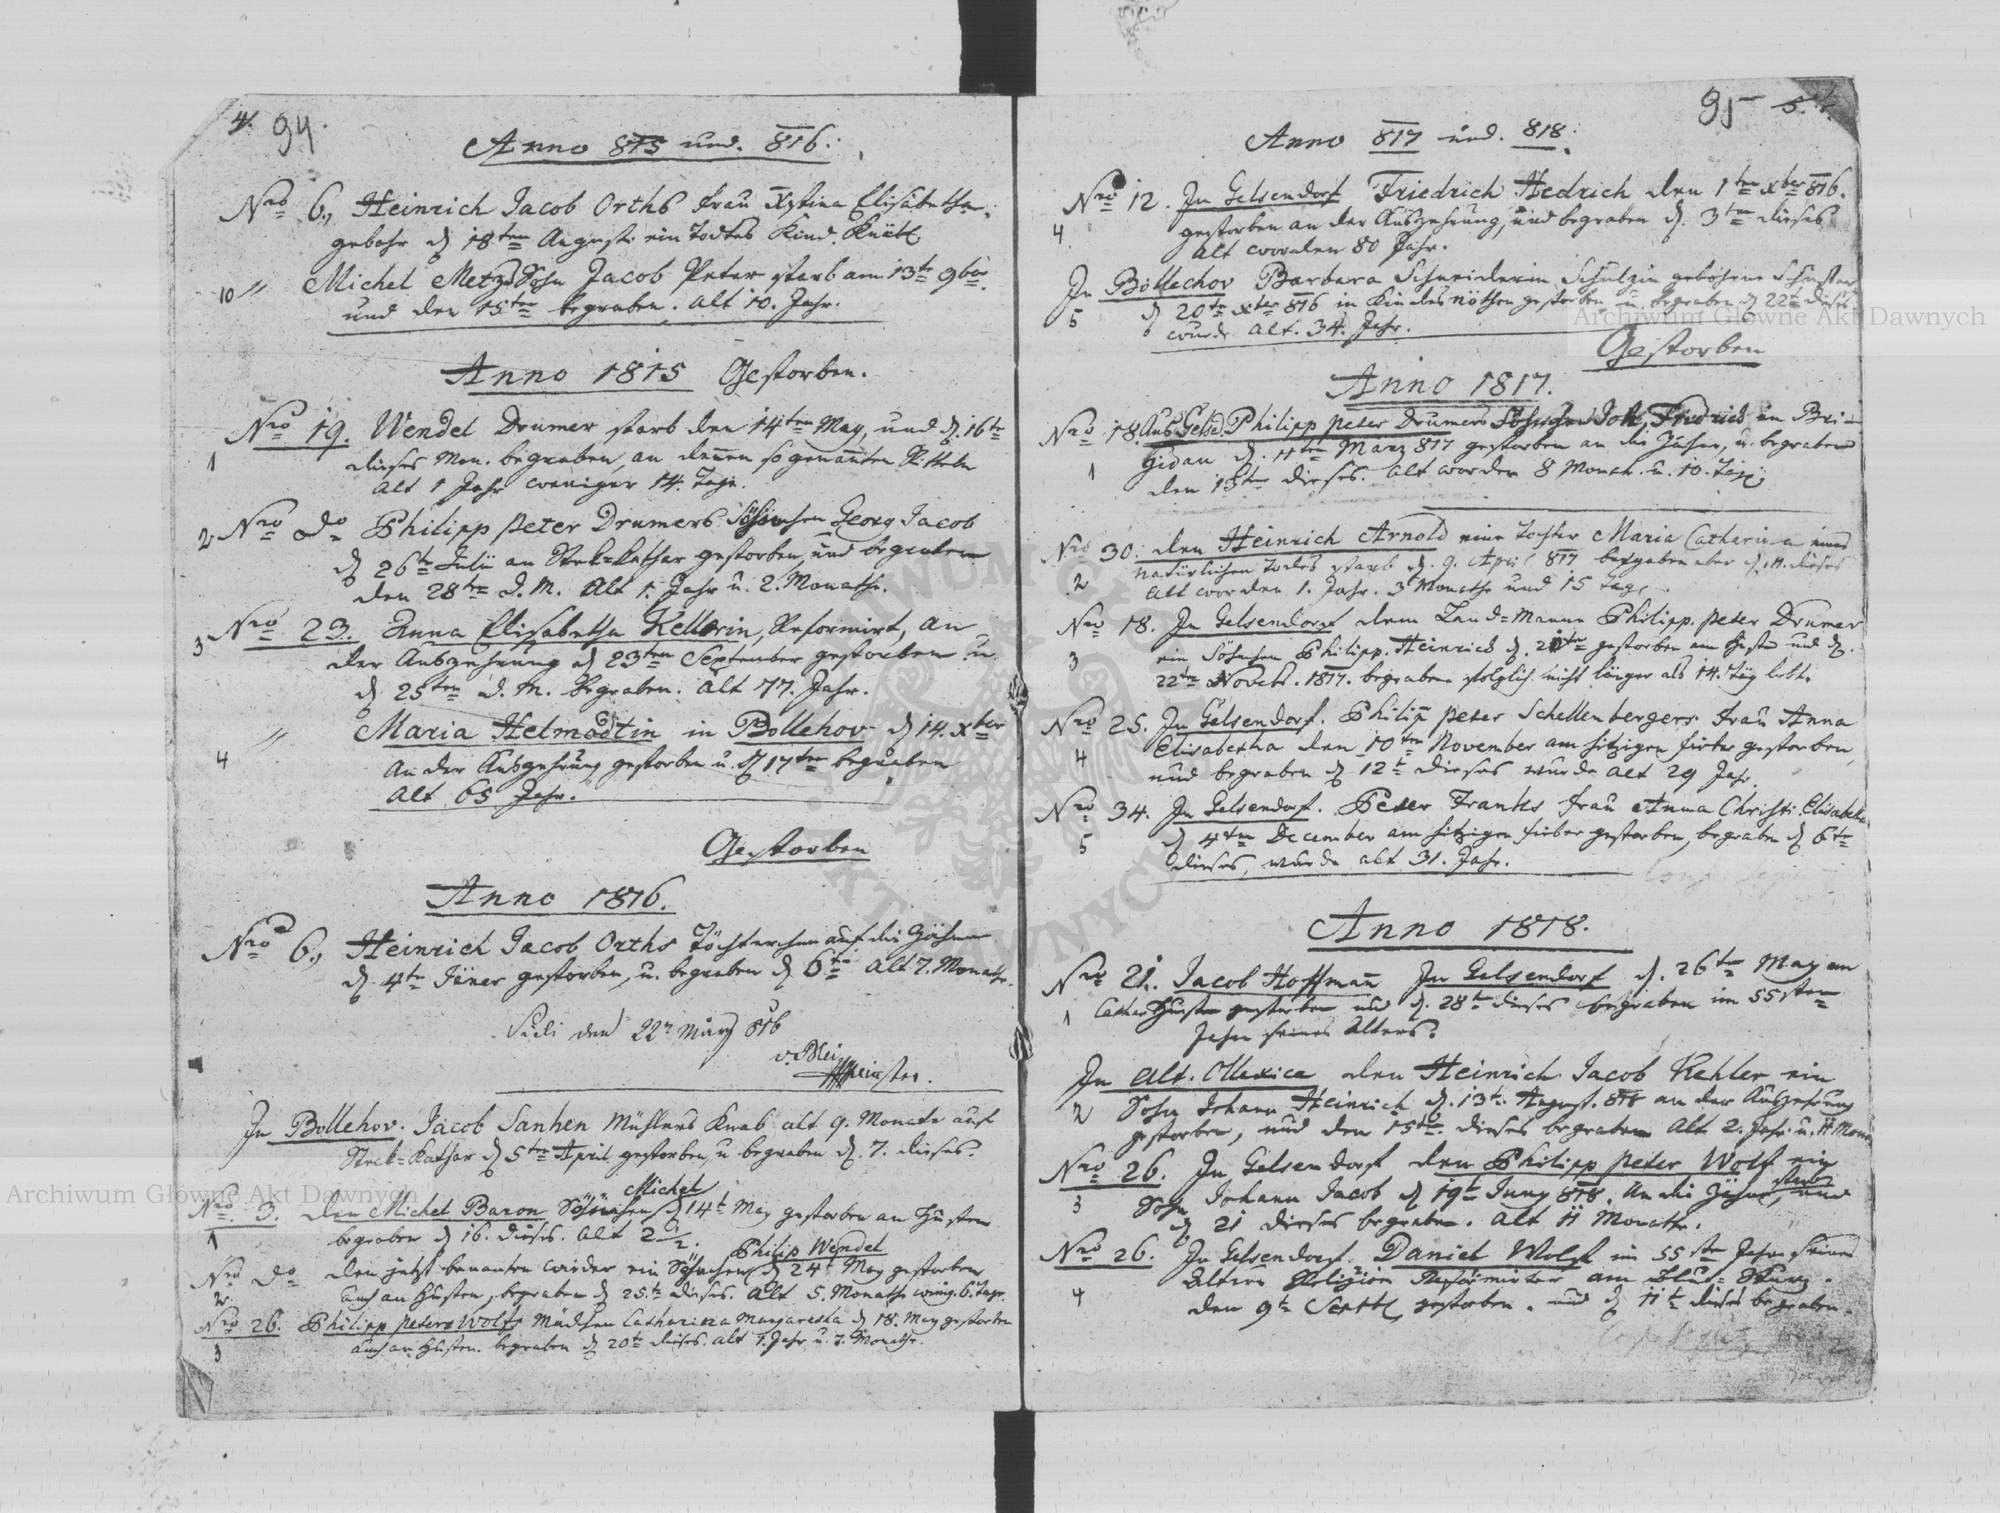 4. 94.
Anno 815 und. 816.
Nro 6., Heinrich Jacob Orths Frau Xstina Elisabetha.
gebohr d 18ten August ein Todtes Kind. Knäbl
10 " Michel Metz Sohn Jacob Peter starb am 13te 9ber.
und den 15ten begraben. Alt 10. Jahr.
Anno 1815 Gestorben.
Nro 19. Wendel Drumer starb den 14ten May, und d. 16te
1 dieses Mon. begraben, an denen so genanten
Alt 1 Jahr weniger 14. Tage.
2 Nro do Philipp Peter Drumers Söhnchen Georg Jacob
d 26te Julii an Stek=Kathar gestorben, und begraben
den 28te d. M. Alt 1. Jahr u. 2. Monathe.
3 Nro 23. Anna Elisabetha Kellerin, Reformirt, an
der Auszehrung d 23ten September gestorben u.
d 25ten d. M. begraben. Alt 77. Jahr.
4 " Maria Helmadtin in Bollehov d 14. Xber
An der Auszehrung gestorben u. d 17ten begraben
Alt 65 Jahr.
Gestorben
Anno 1816.
Nro 6., Heinrich Jacob Orths Töchterchen auf die
d. 4te Jäner gestorben, u. begraben d 6te Alt 7. Monathe.
den 22n März 816
In Bollehov. Jacob Sanhen Mühlers Knab alt 9. Monate auf
Stek=Kathar d 5ten April gestorben, u begraben d. 7. dieses.
Michel
Nro 3. den Michel Baron Söhnchen d 14t May gestorben an Husten
1 begraben d 16. dieses. Alt 2 1/2.
Philip Wendel
Nro do den jetzt benanten wieder ein Söhnchen d 24t May gestorben
2. auch an Husten, begraben d 25.te dieses. Alt 5. Monathe wenig. 6. Tage.
Nro 26. Philipp Peters Wolfs Mädchen Catharina Margaretha d 18. May gestorben
3 auch an Husten. begraben d 20te dieses. alt 1. Jahr u. 7. Monathe.
95
Anno 817 und. 818.
Nro 12. In Gelsendorf Friedrich Hedrich den 1ten Xber 816.
4. gestorben an der Auszehrung, und begraben d. 3ten dieses
Alt worden 80 Jahr.
In Bollechov Barbara Schneiderin Schulzin gebohrne
5 d 20te Xber 816 in Kindesnöthen gestorben, u. begraben d 22te dieses
wurde Alt. 34. Jahr.
Gestorben
Anno 1817.
Nro 18 Aus Gelsd. Philipp Peter Drumers Söhnchen Joh. Fridrich in Bri=
1 gidau d. 11ten März 817 gestorben an die u. begraben
den 13ten dieses. Alt worden 8 Monath. u. 10. Tage.
Nro 30. den Heinrich Arnold eine Tochter Maria Catharina eines
2 natürlichen Todes starb d. 9. April 817 begraben aber d. 11. dieses
Alt worden 1. Jahr. 3 Monathe und 15 Tage.
Nro 18. In Gelsendorf dem Land=Manne Philipp Peter Drumer
3 ein Söhnchen Philipp. Heinrich d. 21te gestorben am und d.
22te Novebr. 1817. begraben folglich nicht länger als 14. Täg lebt.
Nro 25. In Gelsendorf. Philip Peter Schellenbergers Frau Anna
4 Elisabetha den 10ten November am hitzigen Fieber gestorben,
und begraben d 12te dieses wurde Alt 29 Jahr
Nro 34. In Gelsendorf. Peter Franks Frau Anna Christi. Elisabeta
5 d 4ten December am hitzigen Fieber gestorben, begraben d 6te
dieses, wurde alt 31. Jahr.
Anno 1818.
Nro 21. Jacob Hoffman In Gelsendorf d. 26te May am
1 Cathar Husten gestorben und d. 28te dieses begraben im 55sten
Jahre seines Alters.
In Alt. Ollexice den Heinrich Jacob Kehler ein
2 Sohn Johann Heinrich d. 13te. August. 818 an der Auszehrung
gestorben, und den 15te. dieses begraben Alt 2. Jahr. u. 11 Mona
Nro 26. In Gelsendorf den Philipp Peter Wolf ein
3 Sohn Johann Jacob d 19te Juny 818. An die starb und
d 21 dieses begraben. Alt 11 Monathe.
Nro 26. In Gelsendorf. Daniel Wolf im 55ste Jahre seines
4 Alters Religion Reformirter am Blud=Sturz.
den 9te Septbl gestorben. und d 11te dieses begraben.
Archiwum Główne Akt Dawnych
Archiwum Główne Akt Dawnych